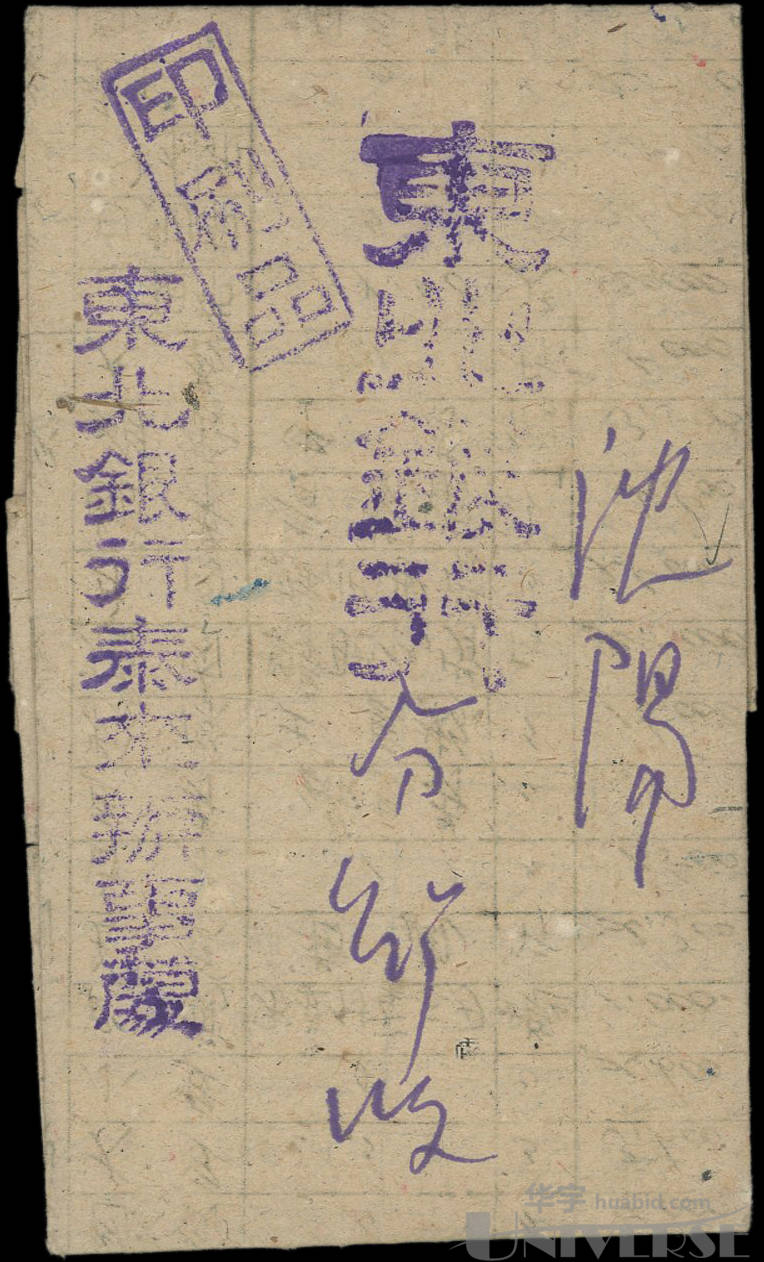 瀋陽
東北銀行分行收
印刷品
東北銀行泰來辦事處
华宇 huabid.com
UNIVERSE